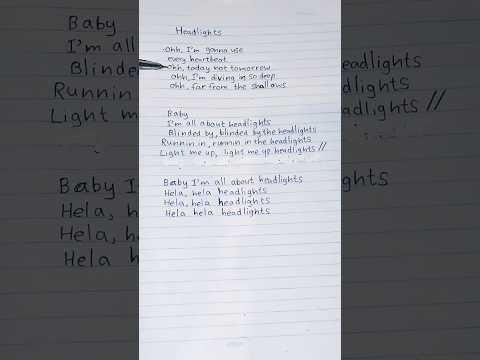 Headlights
Ohh, I'm gonna use
every heartbeat
Ohh, today not tomorrow
ohh, I'm diving in so deep
ohh, far from the shallows
Baby
I'm all about headlights
Blinded by, blinded by the headlights
Runnin in, runnin in the headlights
Light me up, light me up headlights //
Baby I'm all about headlights
Hela, hela headlights
Hela, hela headlights
Hela hela headlights